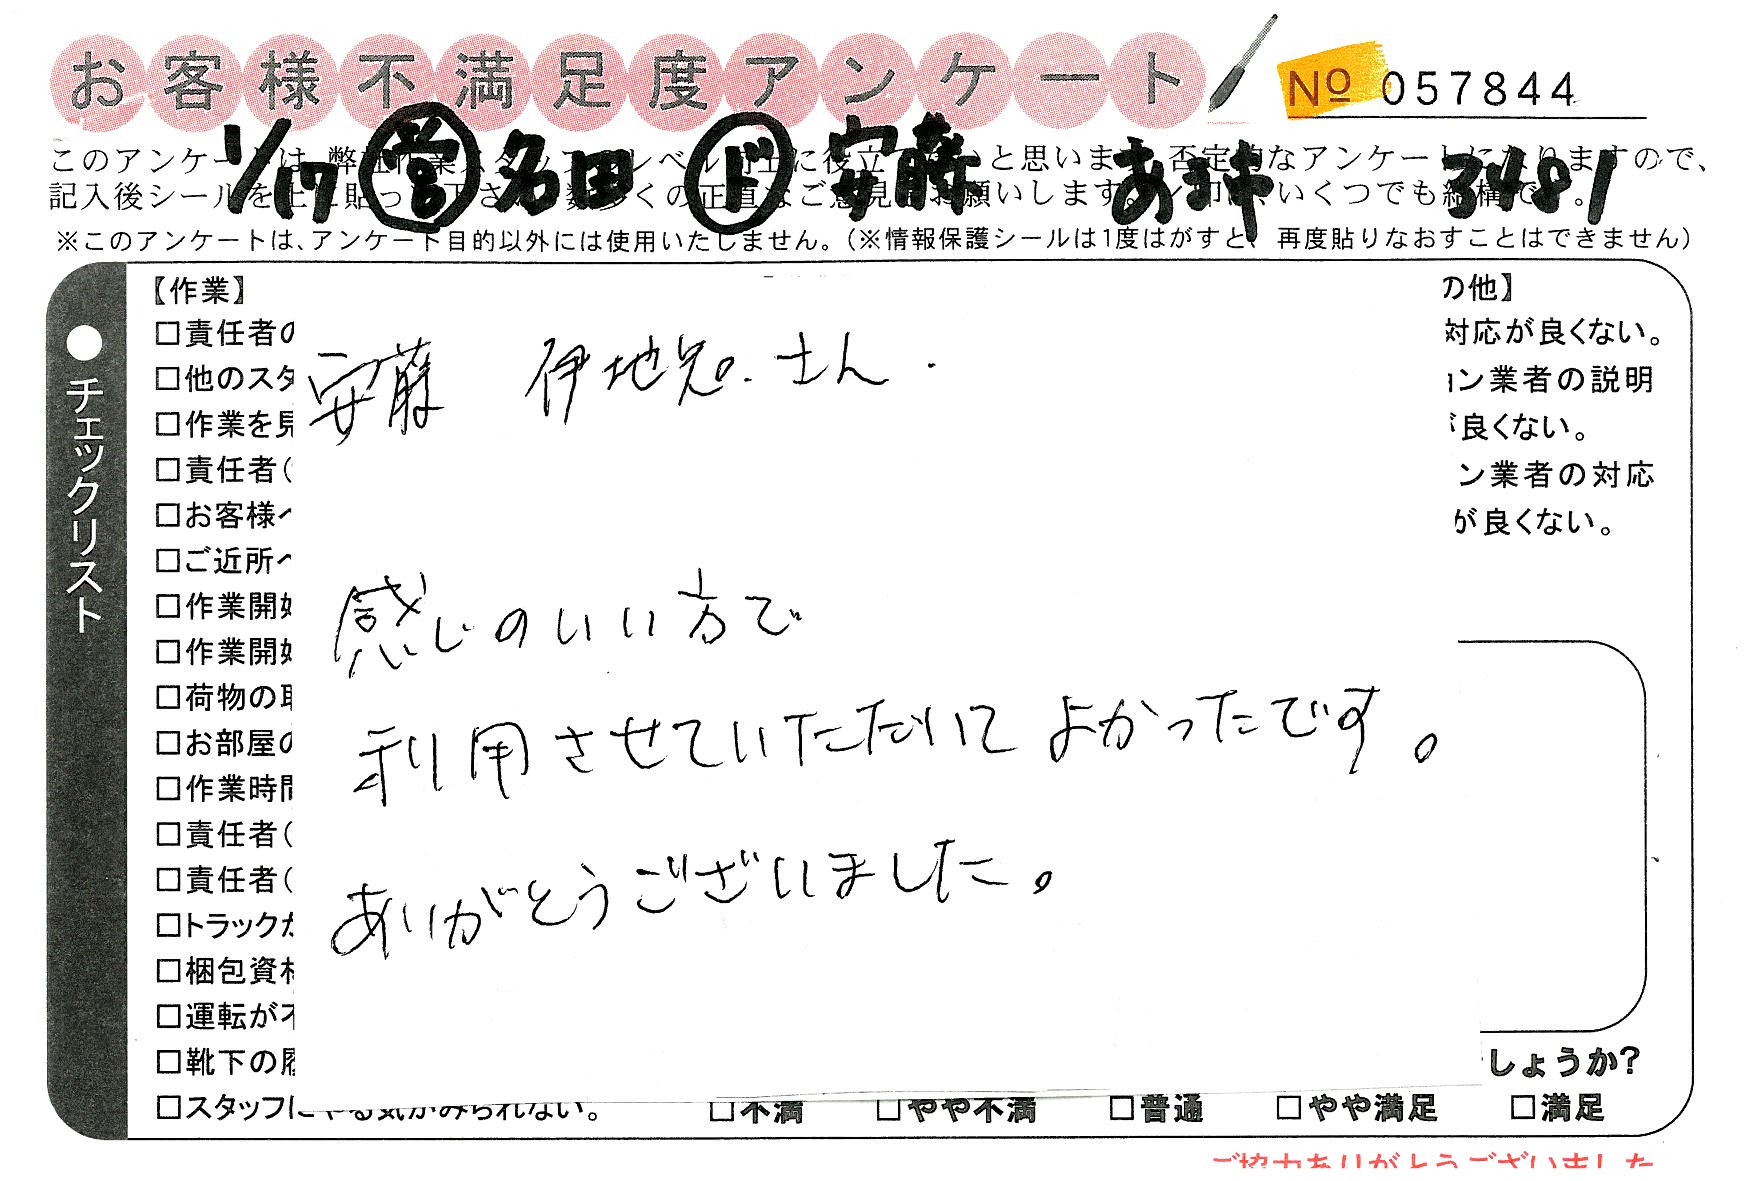 お客様不満足度アンケート
No 057844
1/17 営 名田 ド 安藤 3481
※このアンケートは、アンケート目的以外には使用いたしません。（※情報保護シールは1度はがすと、再度貼りなおすことはできません）
チェックリスト
【作業】
□責任者の
□他のスタ
□作業を見
□責任者（
□お客様へ
□ご近所へ
□作業開始
□作業開始
□荷物の取
□お部屋の
□作業時間
□責任者（
□責任者（
□トラックが
□梱包資材
□運転が不
□靴下の履
□スタッフにやる気がみられない。
の他】
対応が良くない。
ン業者の説明
が良くない。
ン業者の対応
が良くない。
安藤 伊地知.さん.
感じのいい方で
利用させていただいてよかったです。
ありがとうございました。
しょうか?
□不満 □やや不満 □普通 □やや満足 □満足
ご協力ありがとうございました